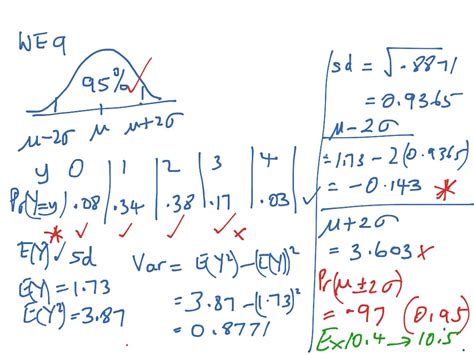 WE9
95%
μ-2σ μ μ+2σ
y 0 1 2 3 4
Pr(Y=y) .08 .34 .38 .17 .03
E(Y) sd
E(Y)=1.73
E(Y²)=3.87
Var = E(Y²)-(E(Y))²
= 3.87-(1.73)²
= 0.8771
sd = √.8871
= 0.9365
μ-2σ
= 1.73-2(0.9365)
= -0.143 *
μ+2σ
= 3.603 x
Pr(μ±2σ)
= -97 (0.95)
Ex10.4 → 10.5